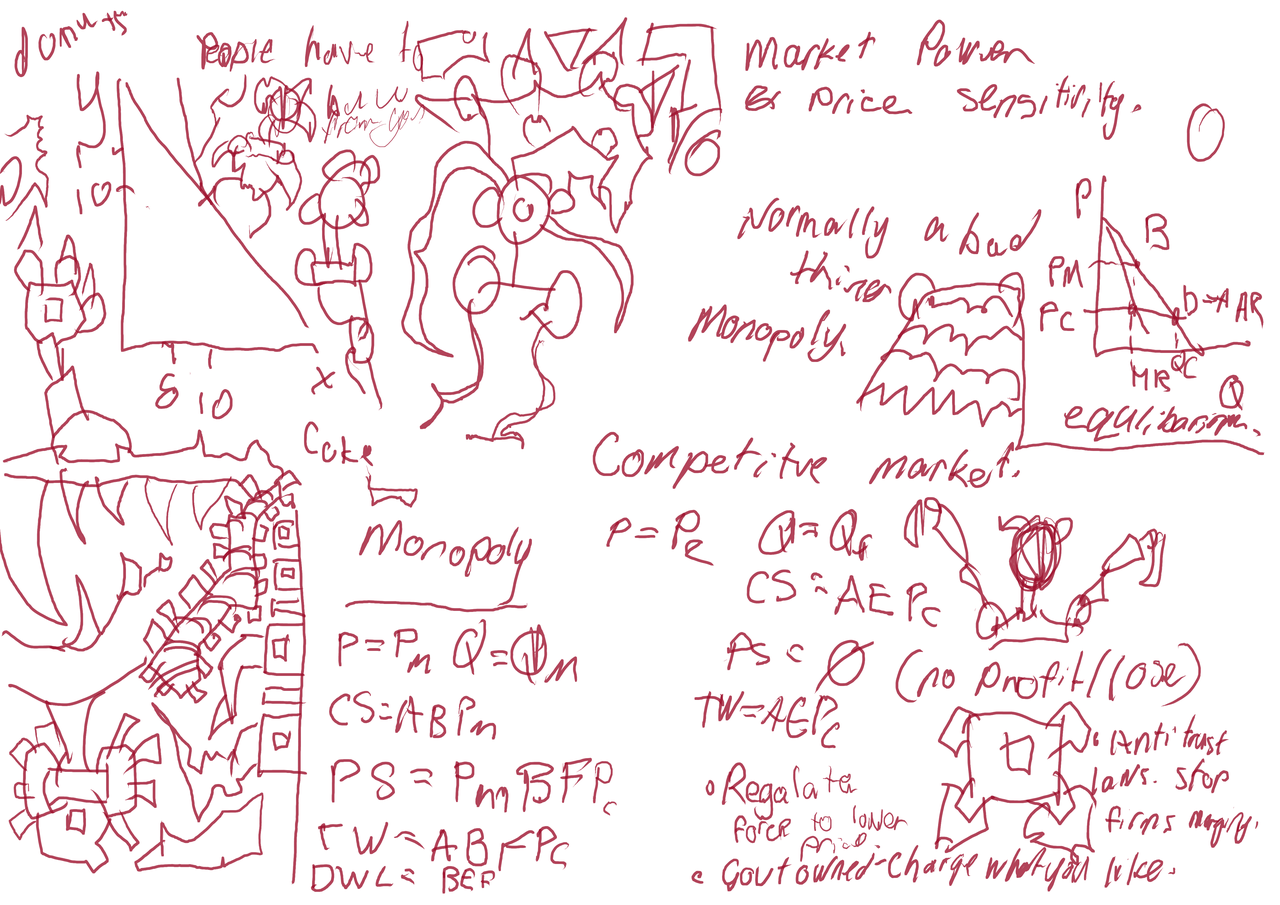 donuts
People have to
from gov
y
10
8 10
x
Coke
Market Power
& Price sensitivity.
Normally a bad
thing
Monopoly.
P
B
PM
PC
D=AR
MR QC
Q
equlibarium.
Competitve market.
P = Pe Q = Qe
CS = AEPc
As = Ø
(no profit/lose)
TW=AEPc
Monopoly
P=Pm Q=Qm
CS=ABPm
PS = PmBFPc
TW=ABFPc
DWL= BEF
• Regalate
force to lower
price.
• Antitrust
laws. stop
firms merging.
• Govt owned-Charge what you like.